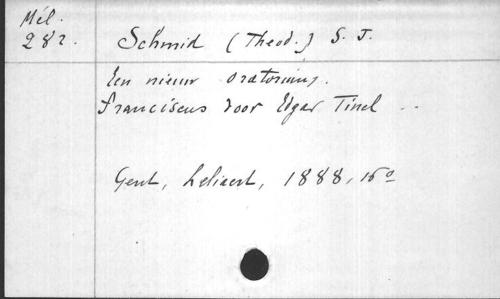 Mél.
282.
Schmid (Theod.) S. J.
Een nieuw oratorium,
Franciscus door Edgar Tinel ..
Gent, Leliaert, 1888, 16º